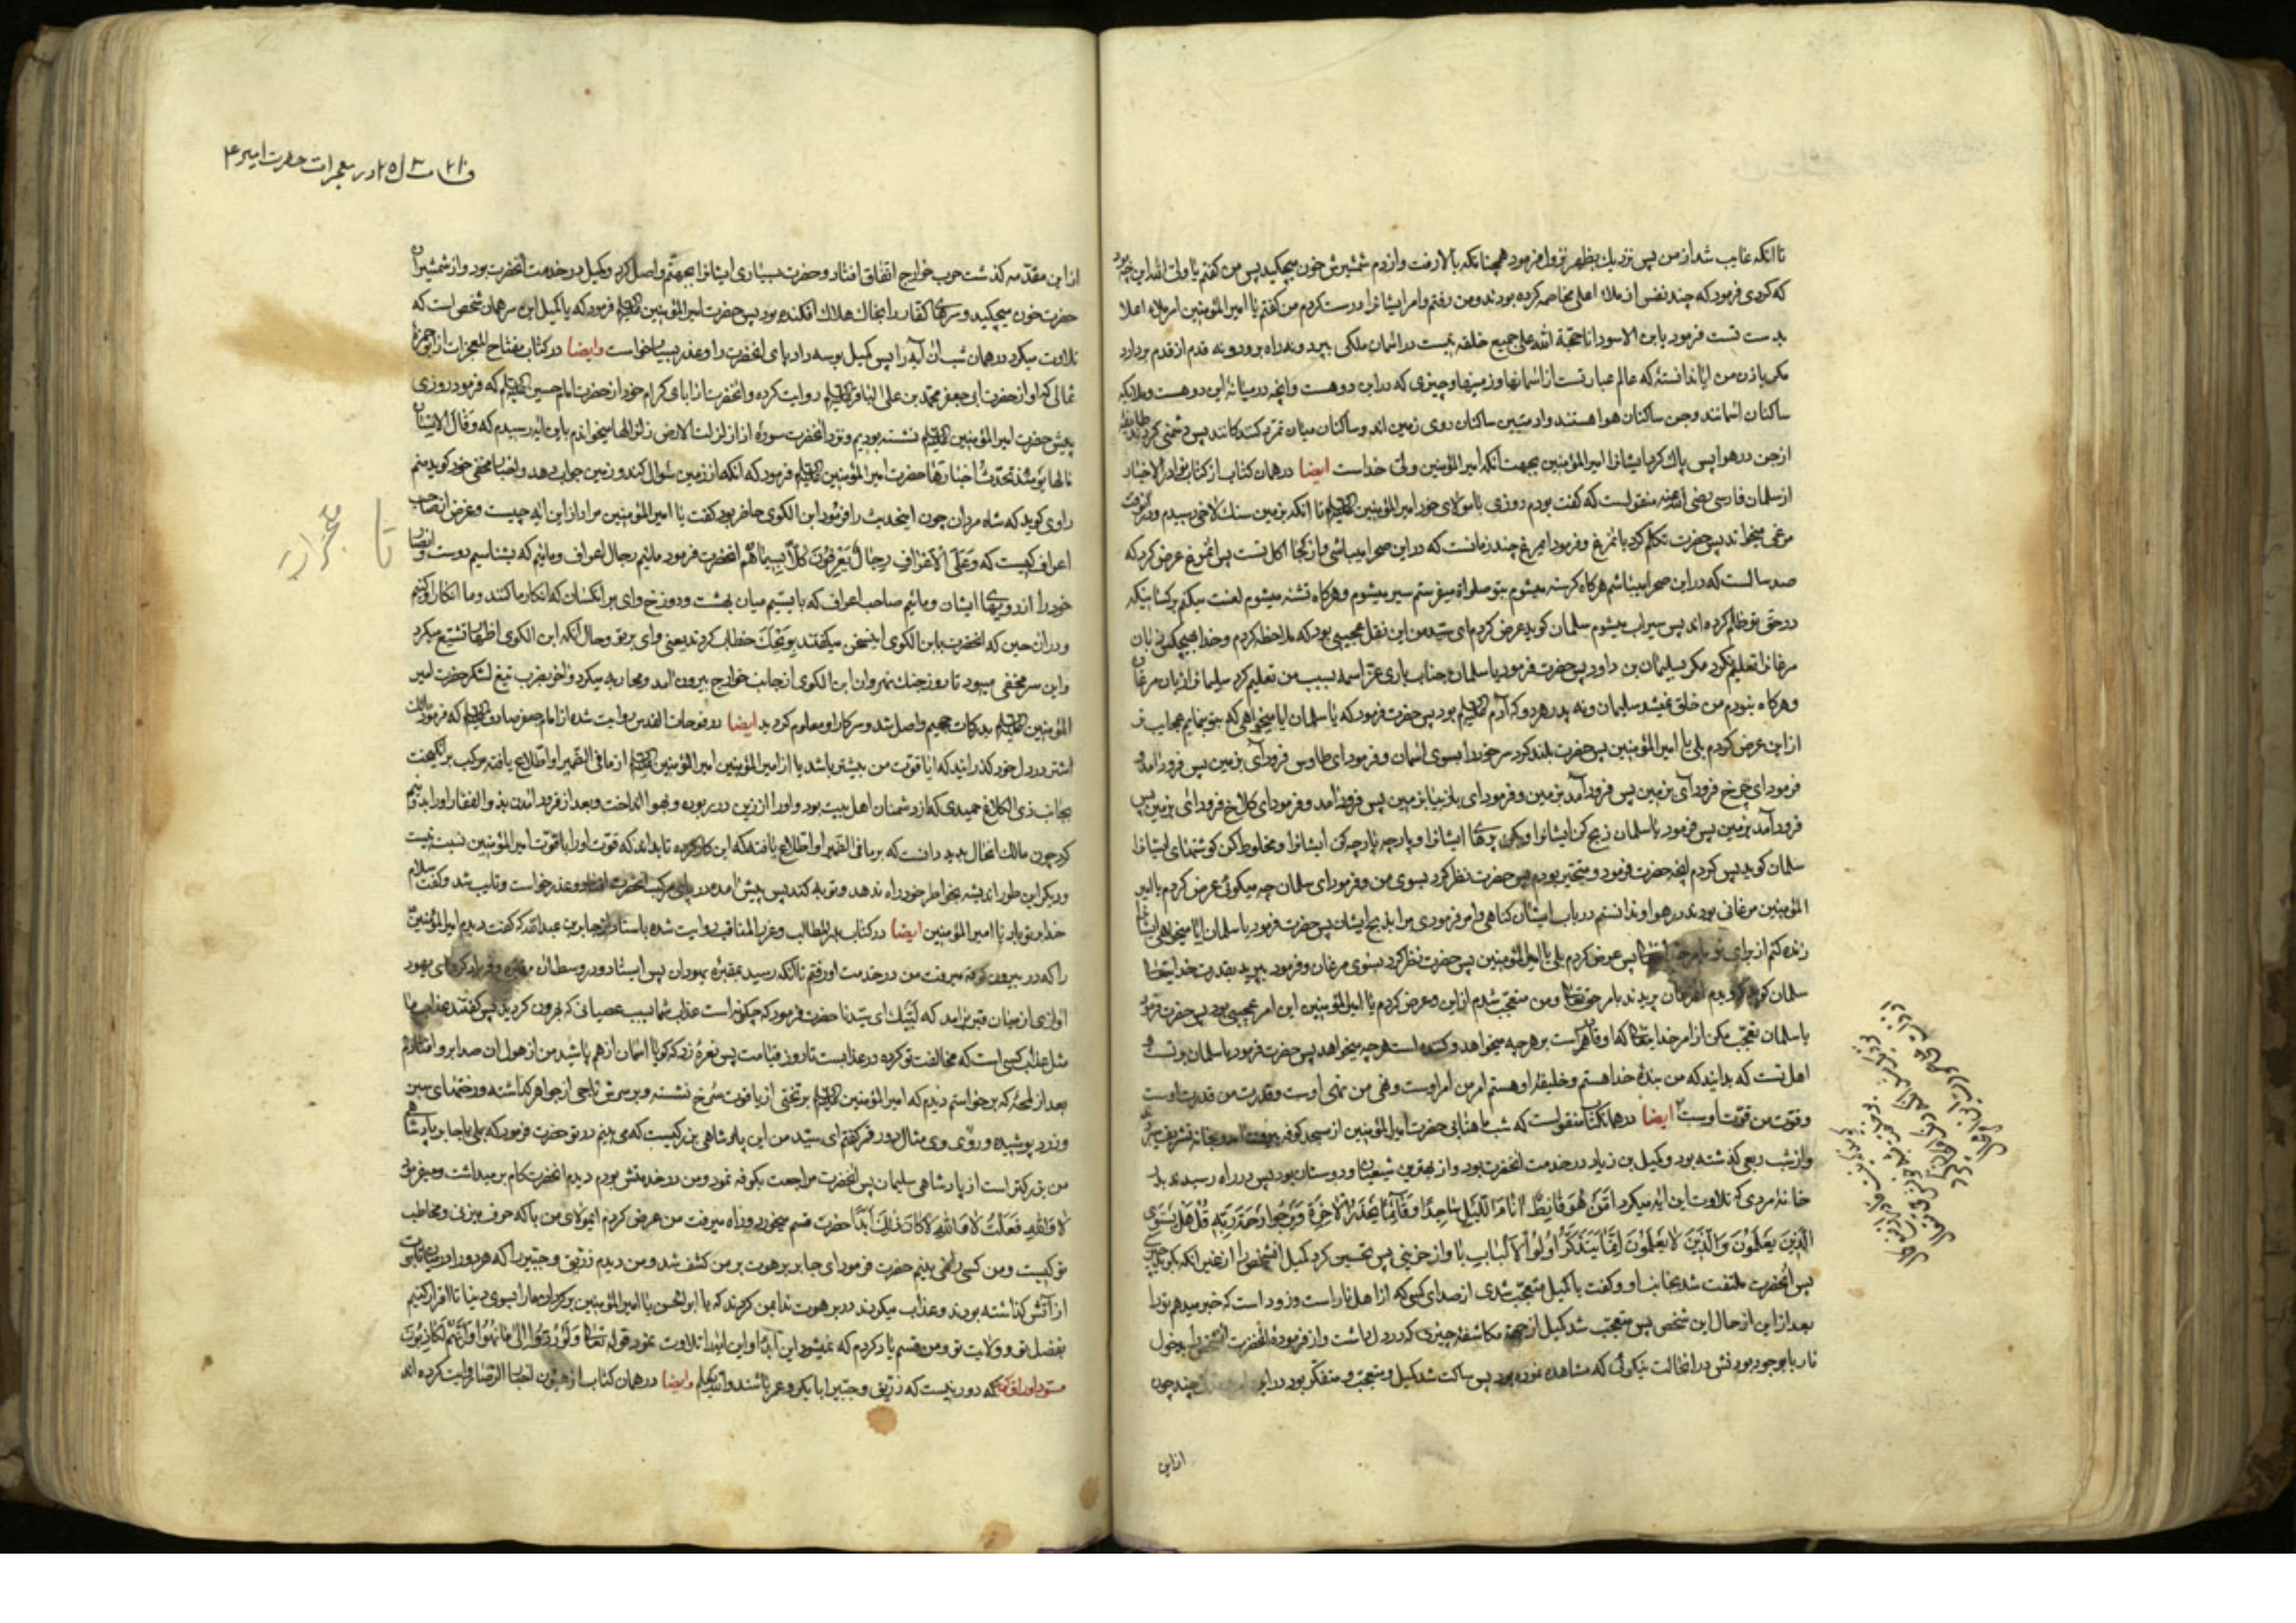 تا انکه غایب شد از من پس نزدیک بظهر نزول فرمود همچنانکه بالا رفت و از دم شمشیرش خون میچکید پس من کفتم یا ولی الله این چه بود
که کردی فرمود که چند نفس از ملاء اعلی مخاصمه کرده بودند و من رفتم و امر ایشانرا درست کردم من کفتم یا امیر المؤمنین امر ملاء اعلا
بدست تست فرمود یا بن الاسود انا حجة الله علی جمیع خلقه نیست در اسمان ملکی بپرد و نه راه برود و نه قدم از قدم بردارد
مکر باذن من ایا ندانستهٔ که عالم عبارتست از اسمانها و زمینها و چیزی که در این دو هست و انچه در میانه این دو هست و ملائکه
ساکنان اسمانند و جن ساکنان هوا هستند و ادمیین ساکنان روی زمین اند و ساکنان میان پس دشمنی کردند طایفه
از جن در هوا پس پاک کرد ایشانرا امیر المؤمنین بجهت انکه امیر المؤمنین ولی خداست ایضا در همان کتاب از کتاب نوادر الاخبار
از سلمان فارسی رضی الله عنه منقولست که کفت بودم روزی با مولای خود امیر المؤمنین علیه السلم تا انکه بزمین سنک لاخی رسیدم
مرغی میخواند پس حضرت تکلم کرد با نمرغ و فرمود ایمرغ چند زمانست که در این صحرا میباشی و از کجا اکل تست پس انمرغ عرض کرد که
صد سالست که در این صحرا میباشم هرکاه کرسنه میشوم بتو صلوات میفرستم سیر میشوم و هرکاه تشنه میشوم لعنت میکنم بر کسانیکه
در حق تو ظلم کرده اند پس سیراب میشوم سلمان کوید عرض کردم ای سید من این نقل عجیبی بود که ملاحظه کردم و خدا بهیچکس زبان
مرغانرا تعلیم نکرد مکر سلیمان بن داود پس حضرت فرمود یا سلمان جناب باری عز اسمه بسبب من تعلیم کرد سلیمانرا زبان مرغان
و هرکاه نبودم من خلق نمیشد سلیمان و نه پدر هر دو که آدم علیه السلم بود پس حضرت فرمود که یا سلمان ایا میخواهی که بتو بنمایم عجایب تر
از این عرض کردم بلی یا امیر المؤمنین پس حضرت بلند کرد سر خود را بسوی اسمان و فرمود ای طاوس فرود آی بزمین پس فرود امد و
فرمود ای چرخ فرود آی بزمین پس فرود آمد بزمین و فرمود ای باز بیا بزمین پس فرود امد و فرمود ای کلاغ فرود ای بزمین پس
فرود آمد بزمین پس فرمود یا سلمان ذبح کن ایشانرا و بکن پرهای ایشانرا و پارچه پارچه کن ایشانرا و مخلوط کن کوشتهای ایشانرا
سلمان کوید پس کردم انچه حضرت فرمود و متحیر بودم پس حضرت نظر کرد بسوی من و فرمود ای سلمان چه میکوئی عرض کردم یا امیر
المؤمنین مرغانی بودند در هوا و ندانستم در باب ایشان کناهی و امر فرمودی مرا بذبح ایشان پس حضرت فرمود یا سلمان ایا میخواهی ایشانرا
زنده کنم از برای تو بامر پس عرض کردم بلی یا امیر المؤمنین پس حضرت نظر کرد بسوی مرغان و فرمود بپرید بقدرت خدایتعالی
سلمان کوید که دیدم انمرغان پریدند بامر حق تعالی و من متعجب شدم از این و عرض کردم یا امیر المؤمنین این امر عجیبی بود پس حضرت فرمود
یا سلمان تعجب مکن از امر خدایتعالی که او قاهر است بر هرچه میخواهد و کننده است هرچه میخواهد پس حضرت فرمود یا سلمان بر تست و
اهل تست که بدانید که من بندهٔ خدا هستم و خلیفهٔ او هستم امر من امر اوست و نهی من نهی اوست و قدرت من قدرت اوست
و قوت من قوت اوست ایضا در همانکتاب منقولست که شب ماهتابی حضرت امیر المؤمنین از مسجد کوفه بیرون امد و بخانه تشریف میبرد
و از شب ربعی کذشته بود و کمیل بن زیاد در خدمت انحضرت بود و از بهترین شیعیان و دوستان بود پس در راه رسیدند بدر
خانهٔ مردی که تلاوت این ایه میکرد امن هو قانت اناء اللیل ساجدا و قائما یحذر الاخرة و یرجوا رحمة ربه قل هل یستوی
الذین یعلمون و الذین لا یعلمون انما یتذکر اولوا الالباب با واز حزینی پس تحسین کرد کمیل انشخص را از غیر انکه بکوید چیزی
پس انحضرت ملتفت شد بجانب او و کفت یا کمیل متعجب شدی از صدای کسی که از اهل نار است و زود است که خبر میدهم تو را
بعد از این از حال این شخص پس متعجب شد کمیل از جهة مکاشفه چیزی که در دل داشت و از فرمودهٔ انحضرت انشخص را بدخول
نار با وجود بودنش در انحالت نیکوئی که مشاهده نموده بود پس ساکت شد کمیل و متعجب و متفکر بود در این چند چون
از این
در معجزات حضرت امیر ع
از این مقدمه کذشت حرب خوارج اتفاق افتاد و حضرت بسیاری ایشانرا بجهنم واصل کرد و کمیل در خدمت انحضرت بود و از شمشیر ان
حضرت خون میچکید و سرهای کفار را بخاک هلاک افکنده بود پس حضرت امیر المؤمنین علیه السلم فرمود که یا کمیل این سر همان شخص است که
تلاوت میکرد در همان شب ان آیه را پس کمیل بوسه داد پای انحضرت را و عذر بسیار خواست وایضا در کتاب مفتاح المعجزات از ابو حمزه
ثمالی که او از حضرت ابی جعفر محمد بن علی الباقر علیه السلم روایت کرده و انحضرت از ابای کرام خود از حضرت امام حسین علیه السلم که فرمود روزی
پیش حضرت امیر المؤمنین علیه السلم نشسته بودیم و نزد انحضرت سورهٔ اذا زلزلت الارض زلزالها میخواندم باین ایه رسیدم که و قال الانسان
مالها یومئذ تحدث اخبارها حضرت امیر المؤمنین علیه السلم فرمود که انکه از زمین سؤال کند و زمین جواب دهد و اخبار مخفی خود کوید منم
راوی کوید که شاه مردان چون اینحدیث را فرمود ابن الکوی حاضر بود کفت یا امیر المؤمنین مراد از این ایه چیست و غرض از اصحاب
اعراف کیست که و علی الاعراف رجال یعرفون کلا بسیماهم انحضرت فرمود مائیم رجال اعراف و مائیم که بشناسیم دوست و انصار
خود را از رویهای ایشان و مائیم صاحب اعراف که بایستیم میان بهشت و دوزخ وای بر انکسان که انکار ما کنند و ما انکار او کنیم
و در ان حین که انحضرت با ابن الکوی اینسخن میکفتند بویحک خطاب کردند یعنی وای بر تو و حال انکه ابن الکوی اظهار تشیع میکرد
و این سر مخفی میبود تا روز جنک نهروان ابن الکوی از جانب خوارج بیرون آمد و محاربه میکرد و اخر بضرب تیغ لشکر حضرت امیر
المؤمنین علیه السلم بدرکات جحیم واصل شد و سر کار او معلوم کردید ایضا در فوحات القدس روایت شده از امام جعفر صادق علیه السلم که فرمود مالک
اشتر در دل خود کذرانید که ایا قوت من بیشتر باشد یا از امیر المؤمنین امیر المؤمنین علیه السلم از ما فی الضمیر او اطلاع یافته مرکب بر انکیخت
بجانب ذی الکلاغ حمیدی که از دشمنان اهل بیت بود و او را از زین در ربوده و بهوا انداخت و بعد از فرود اندن بذو الفقار او را بدو نیم
کرد چون مالک انحال بدید دانست که بر ما فی الضمیر او اطلاع یافته که این کار کرده تا بداند که قوت او را با قوت امیر المؤمنین نسبت نیست
و دیکر این طور اندیشه بخواطر خود راه ندهد و توبه کند پس پیش امده در پای مرکب انحضرت افتاد و عذر خواست و تایب شد و کفت سلام
خدا بر تو باد یا امیر المؤمنین ایضا در کتاب المطالب و غرر المناقب روایت شده باسناد از جابر بن عبد الله که کفت دیدم امیر المؤمنین
را که در بیرون کوفه میرفت من در خدمت او رفتم تا انکه رسید بمقبرهٔ یهودان پس ایستاد در وسط ان مقبره و فریاد کرد ای یهود
اوازی از میان قبر بر آمد که لبیک ای سیدنا حضرت فرمود که چکونه است عذاب شما بسبب عصیانی که بیرون کردید پس کفتند عذاب ما
مثل عذاب کسی است که مخالفت تو کرده در عذابست تا روز قیامت پس نعرهٔ زد که کویا اسمان از هم پاشید من از هول ان صدا بر و افتادم
بعد از لمحهٔ که برخواستم دیدم که امیر المؤمنین علیه السلم بر تختی از یاقوت سرخ نشسته و بر سرش تاجی از جواهر کذاشته و رختهای سبز
و زرد پوشیده و روی وی مثال دور قمر کفتم ای سید من این پادشاهی بزرکیست که می بینم در تو حضرت فرمود که بلی یا جابر پادشاهی
من بزرکتر است از پادشاهی سلیمان پس انحضرت مراجعت بکوفه نمود و من در خدمتش بودم دیدم انحضرت کام بر میداشت و میفرمود
لا والله فعلت لا والله لا کان ذلک ابدا حضرت قسم میخورد و راه میرفت من عرض کردم ایمولای من با که حرف میزنی و مخاطب
تو کیست و من کسی را نمی بینم حضرت فرمود ای جابر برهوت بر من کشف شد و من دیدم زریق و حبتر را که هر دو را در میان تابوت
از آتش کذاشته بودند و عذاب میکردند در برهوت ندا بمن کردند که یا ابو الحسن یا امیر المؤمنین برکردان ما را بسوی دنیا تا اقرار کنیم
بفضل تو و ولایت تو و من قسم یاد کردم که نمیشود این ابدا و این ایه را تلاوت نمود قوله تعالی و لو ردوا لعادوا الی ما نهوا و انهم لکاذبون
که دور نیست که زریق و حبتر ابا بکر و عمر باشند والله یعلم وایضا در همان کتاب از عیون اخبار الرضا روایت کرده اند
تا
معجزات